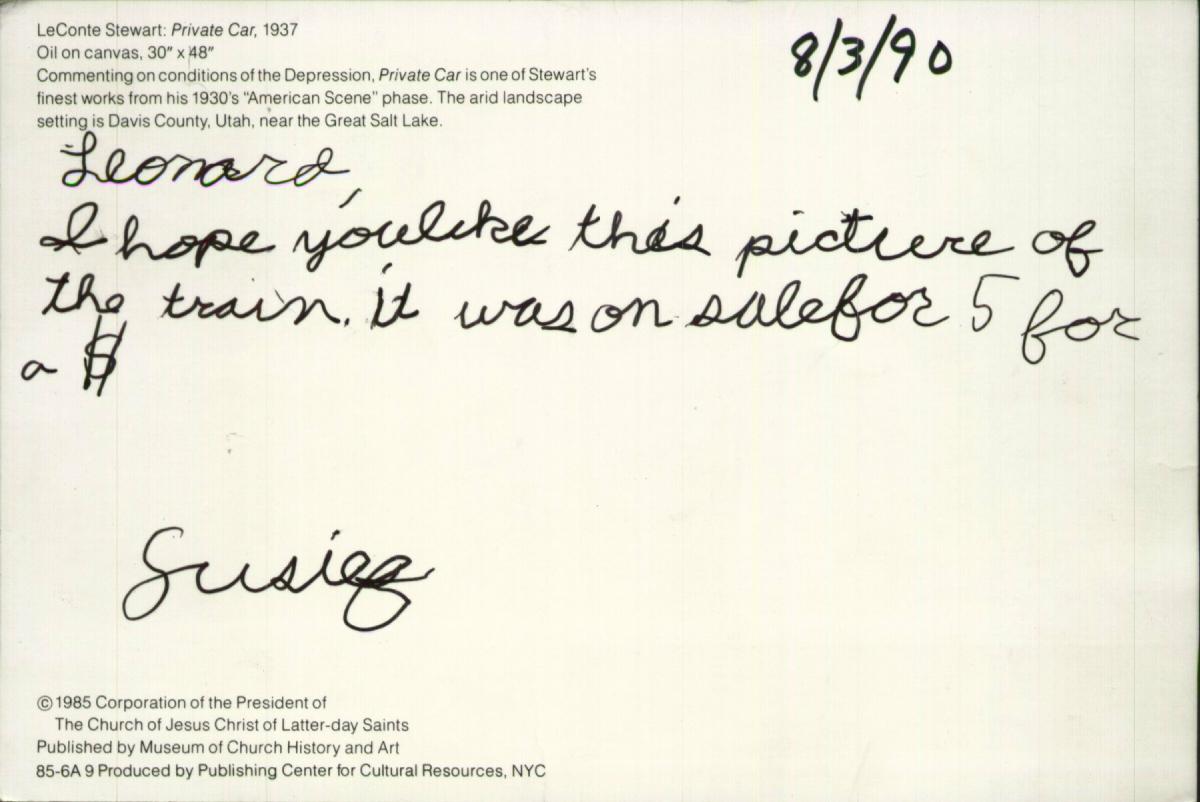 LeConte Stewart: Private Car, 1937
Oil on canvas, 30" x 48"
Commenting on conditions of the Depression, Private Car is one of Stewart's
finest works from his 1930's "American Scene" phase. The arid landscape
setting is Davis County, Utah, near the Great Salt Lake.
8/3/90
Leonard,
I hope you like this picture of
the train. it was on sale for 5 for
a $
Susie
© 1985 Corporation of the President of
The Church of Jesus Christ of Latter-day Saints
Published by Museum of Church History and Art
85-6A 9 Produced by Publishing Center for Cultural Resources, NYC